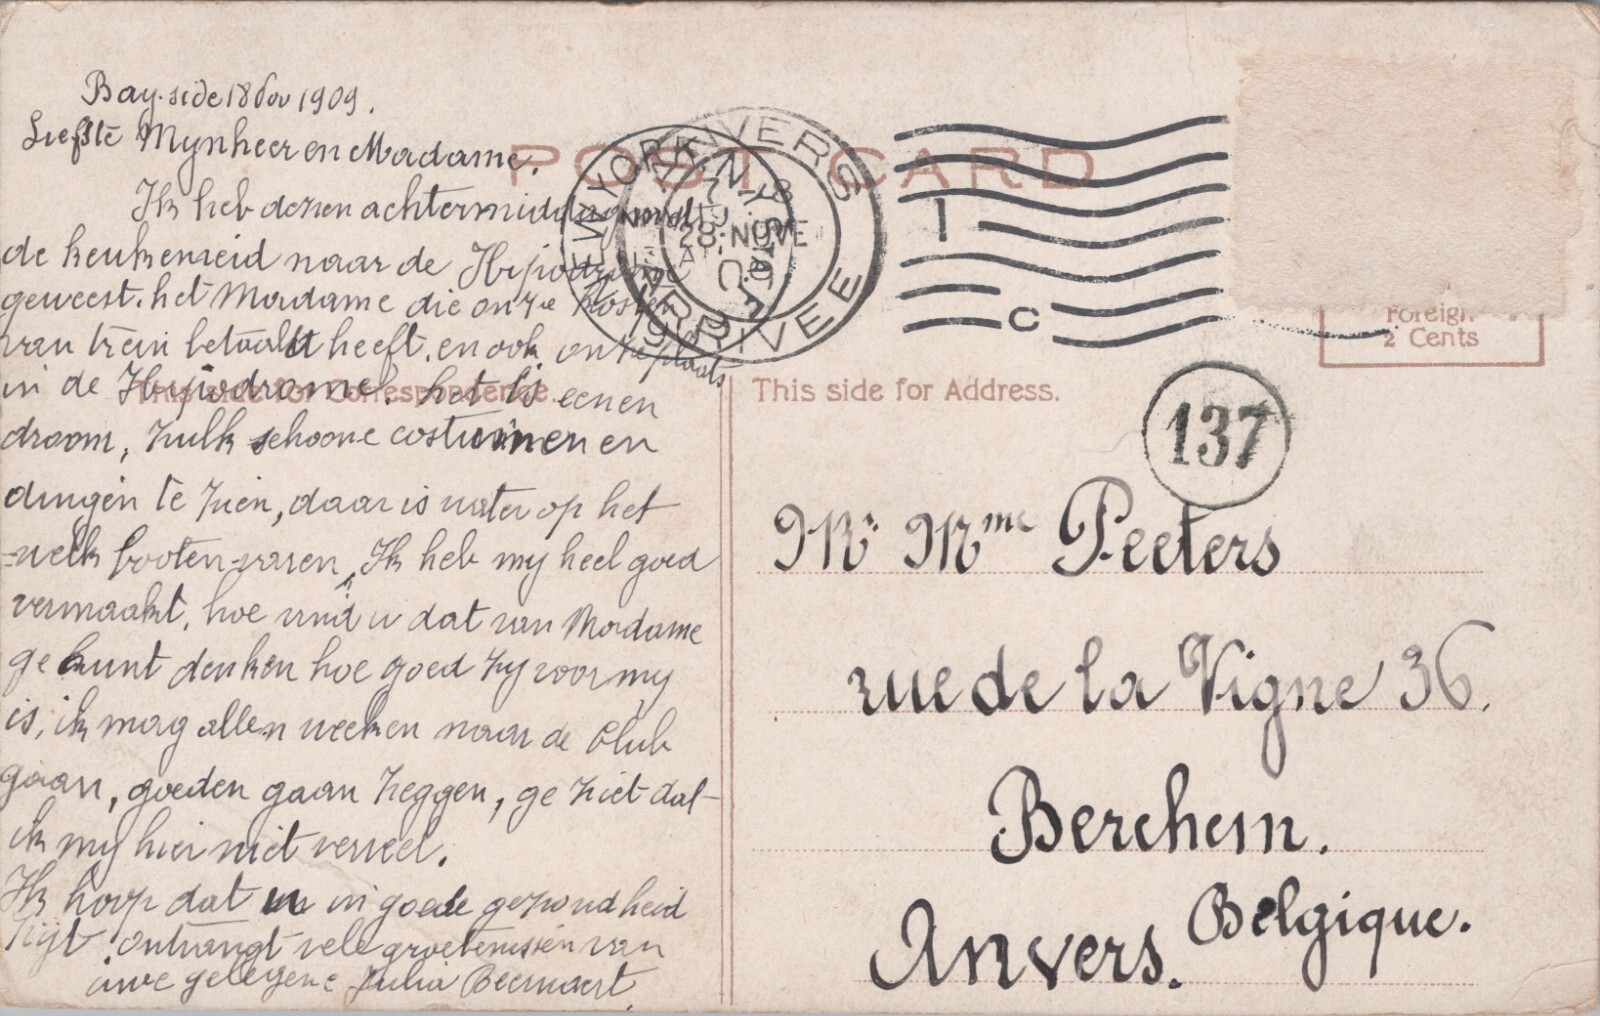 Bay-side 18 Nov 1909.
Liefste Mynheer en Madame.
Ik heb dezen achtermiddag met
de keukenmeid naar de Hypodrome
geweest. het Madame die onze kosten
van trein betaald heeft, en ook onze plaats
in de Hypodrome. het is eenen
droom, zulk schoone costumen en
dingen te zien, daar is water op het
welk booten varen, Ik heb my heel goed
vermaakt, hoe vind u dat van Madame
ge kunt denken hoe goed zy voor my
is, ik mag allen weeken naar de Club
gaan, goeden gaan zeggen, ge ziet dat
ik my hier niet verveel.
Ik hoop dat u in goede gezondheid
zijt, ontvangt vele groetenissen van
uwe gelegene Julia Beernaert
POST CARD
This side for Correspondence.
NEW YORK, N.Y.
NOV 18
1909
ANVERS
28 NOVE
ARRIVEE
1
C
Foreign
2 Cents
This side for Address.
137
Mr Mme Peeters
rue de la Vigne 36.
Berchem.
Anvers. Belgique.